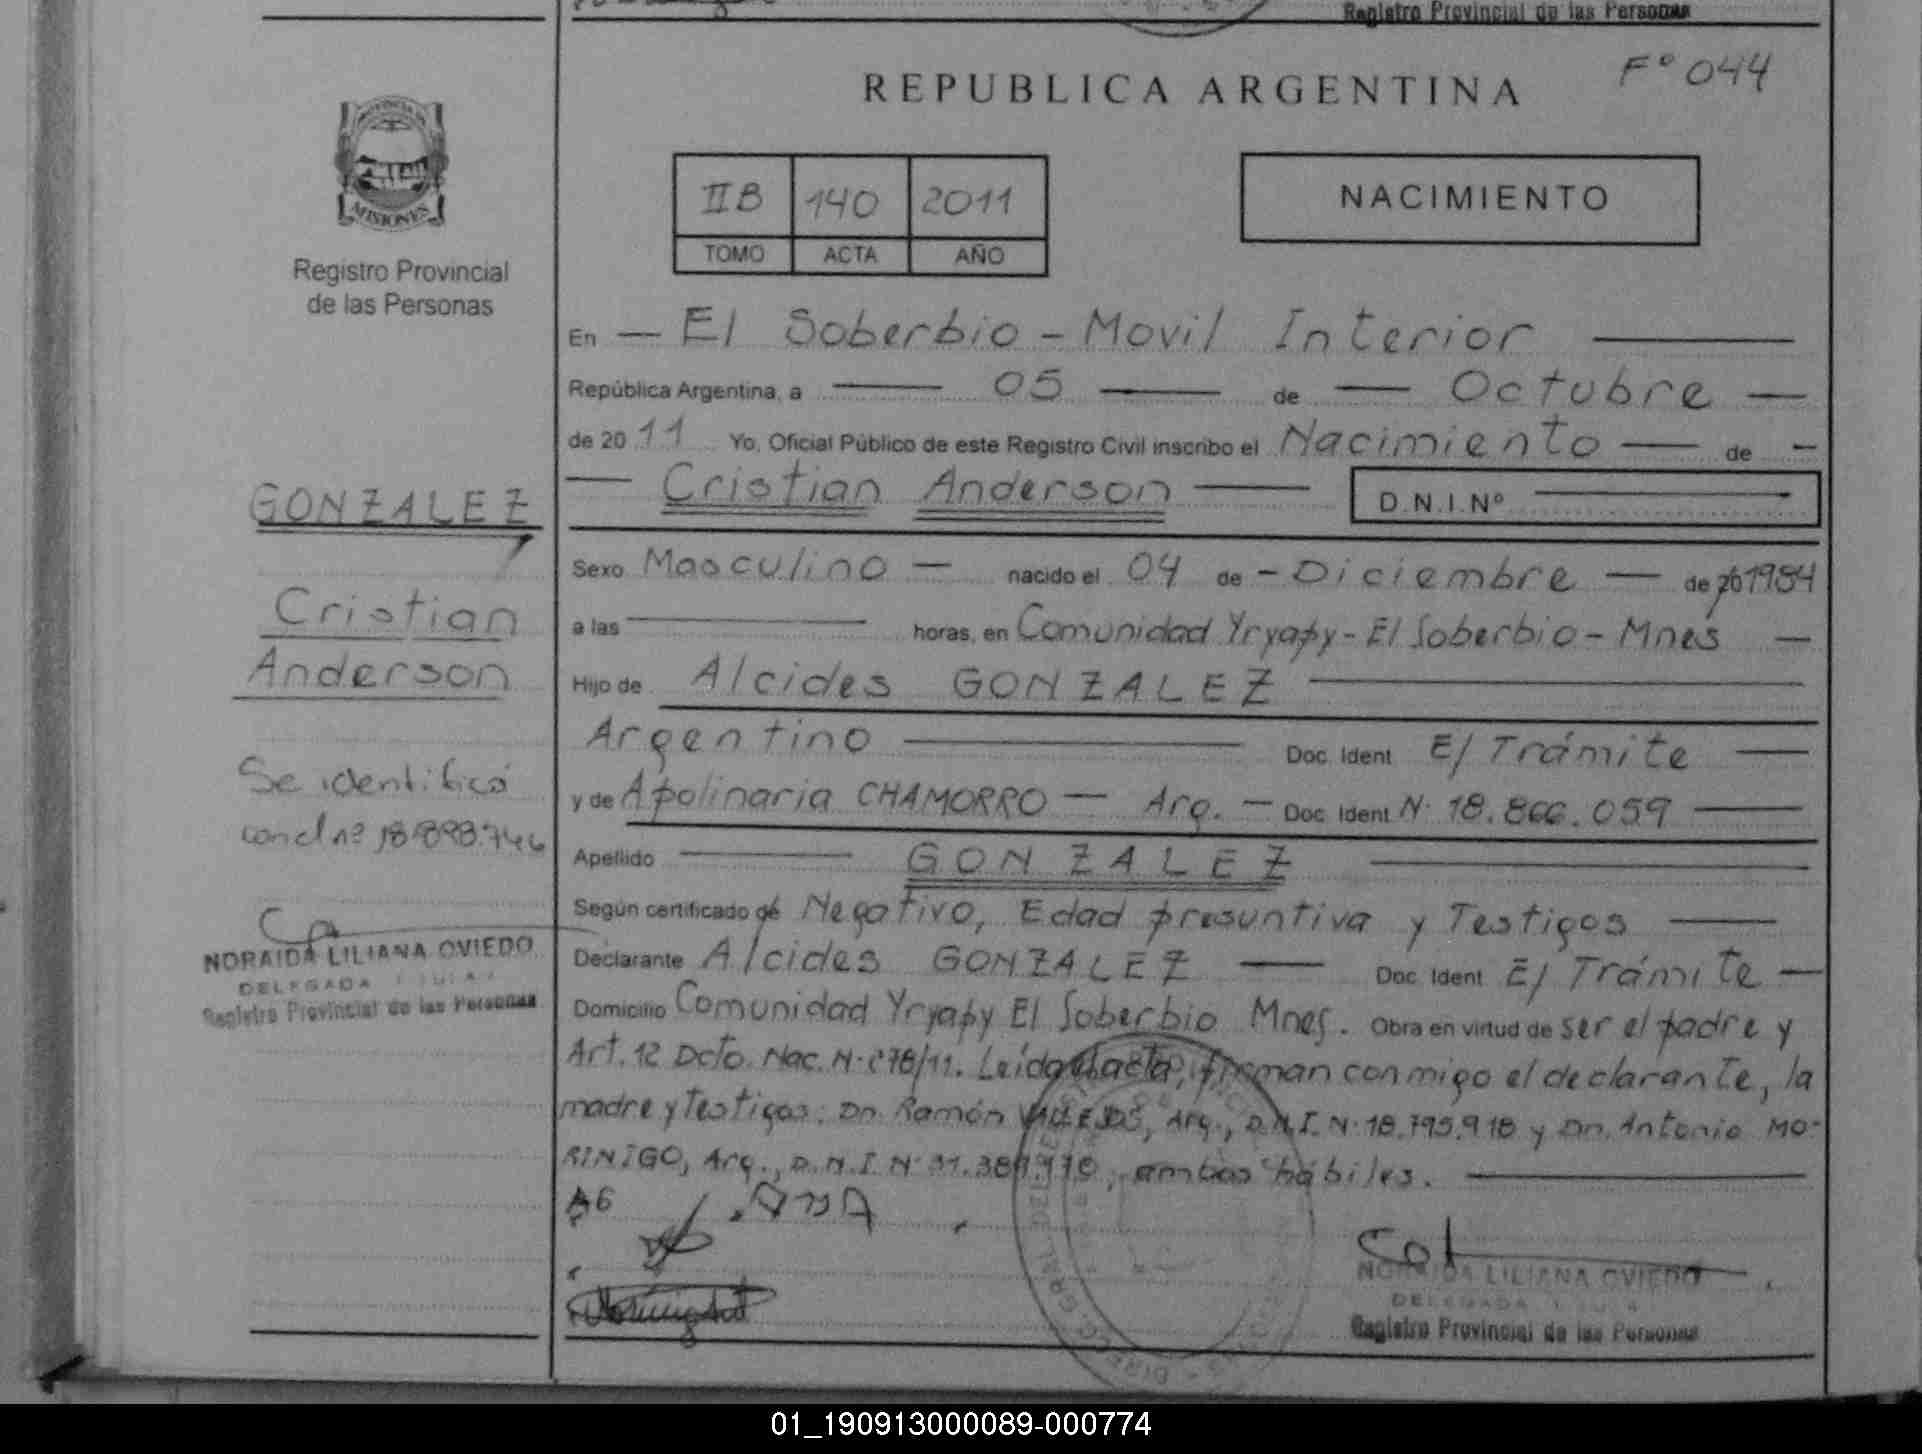 Registro Provincial de las Personas
F° 044
REPUBLICA ARGENTINA
PROVINCIA DE
MISIONES
Registro Provincial
de las Personas
IIB 140 2011
TOMO ACTA AÑO
NACIMIENTO
En — El Soberbio - Movil Interior —
República Argentina, a — 05 — de — Octubre —
de 20 11 Yo, Oficial Público de este Registro Civil inscribo el Nacimiento — de —
— Cristian Anderson — D.N.I.Nº —
GONZALEZ
Cristian
Anderson
Se identificó
con el nº 18.898.746
NORAIDA LILIANA OVIEDO
DELEGADA
Registro Provincial de las Personas
Sexo Masculino — nacido el 04 de - Diciembre — de 20 1984
a las — horas, en Comunidad Yryapy - El Soberbio - Mnes —
Hijo de Alcides GONZALEZ —
Argentino — Doc. Ident E/ Trámite —
y de Apolinaria CHAMORRO — Arg. — Doc. Ident N· 18.866.059 —
Apellido — GONZALEZ —
Según certificado de Negativo, Edad presuntiva y Testigos —
Declarante Alcides GONZALEZ — Doc. Ident E/ Trámite —
Domicilio Comunidad Yryapy El Soberbio Mnes. Obra en virtud de ser el padre y
Art. 12 Dcto. Nac. N· 278/11. Leída el acta, firman conmigo el declarante, la
madre y testigos: Dn. Ramón VALLEJOS, Arg., D.N.I. N· 18.795.918 y Dn. Antonio MO-
RINIGO, Arg., D.N.I. N· 31.389.970, ambos hábiles. —
A6
NORAIDA LILIANA OVIEDO
DELEGADA
Registro Provincial de las Personas
01_190913000089-000774